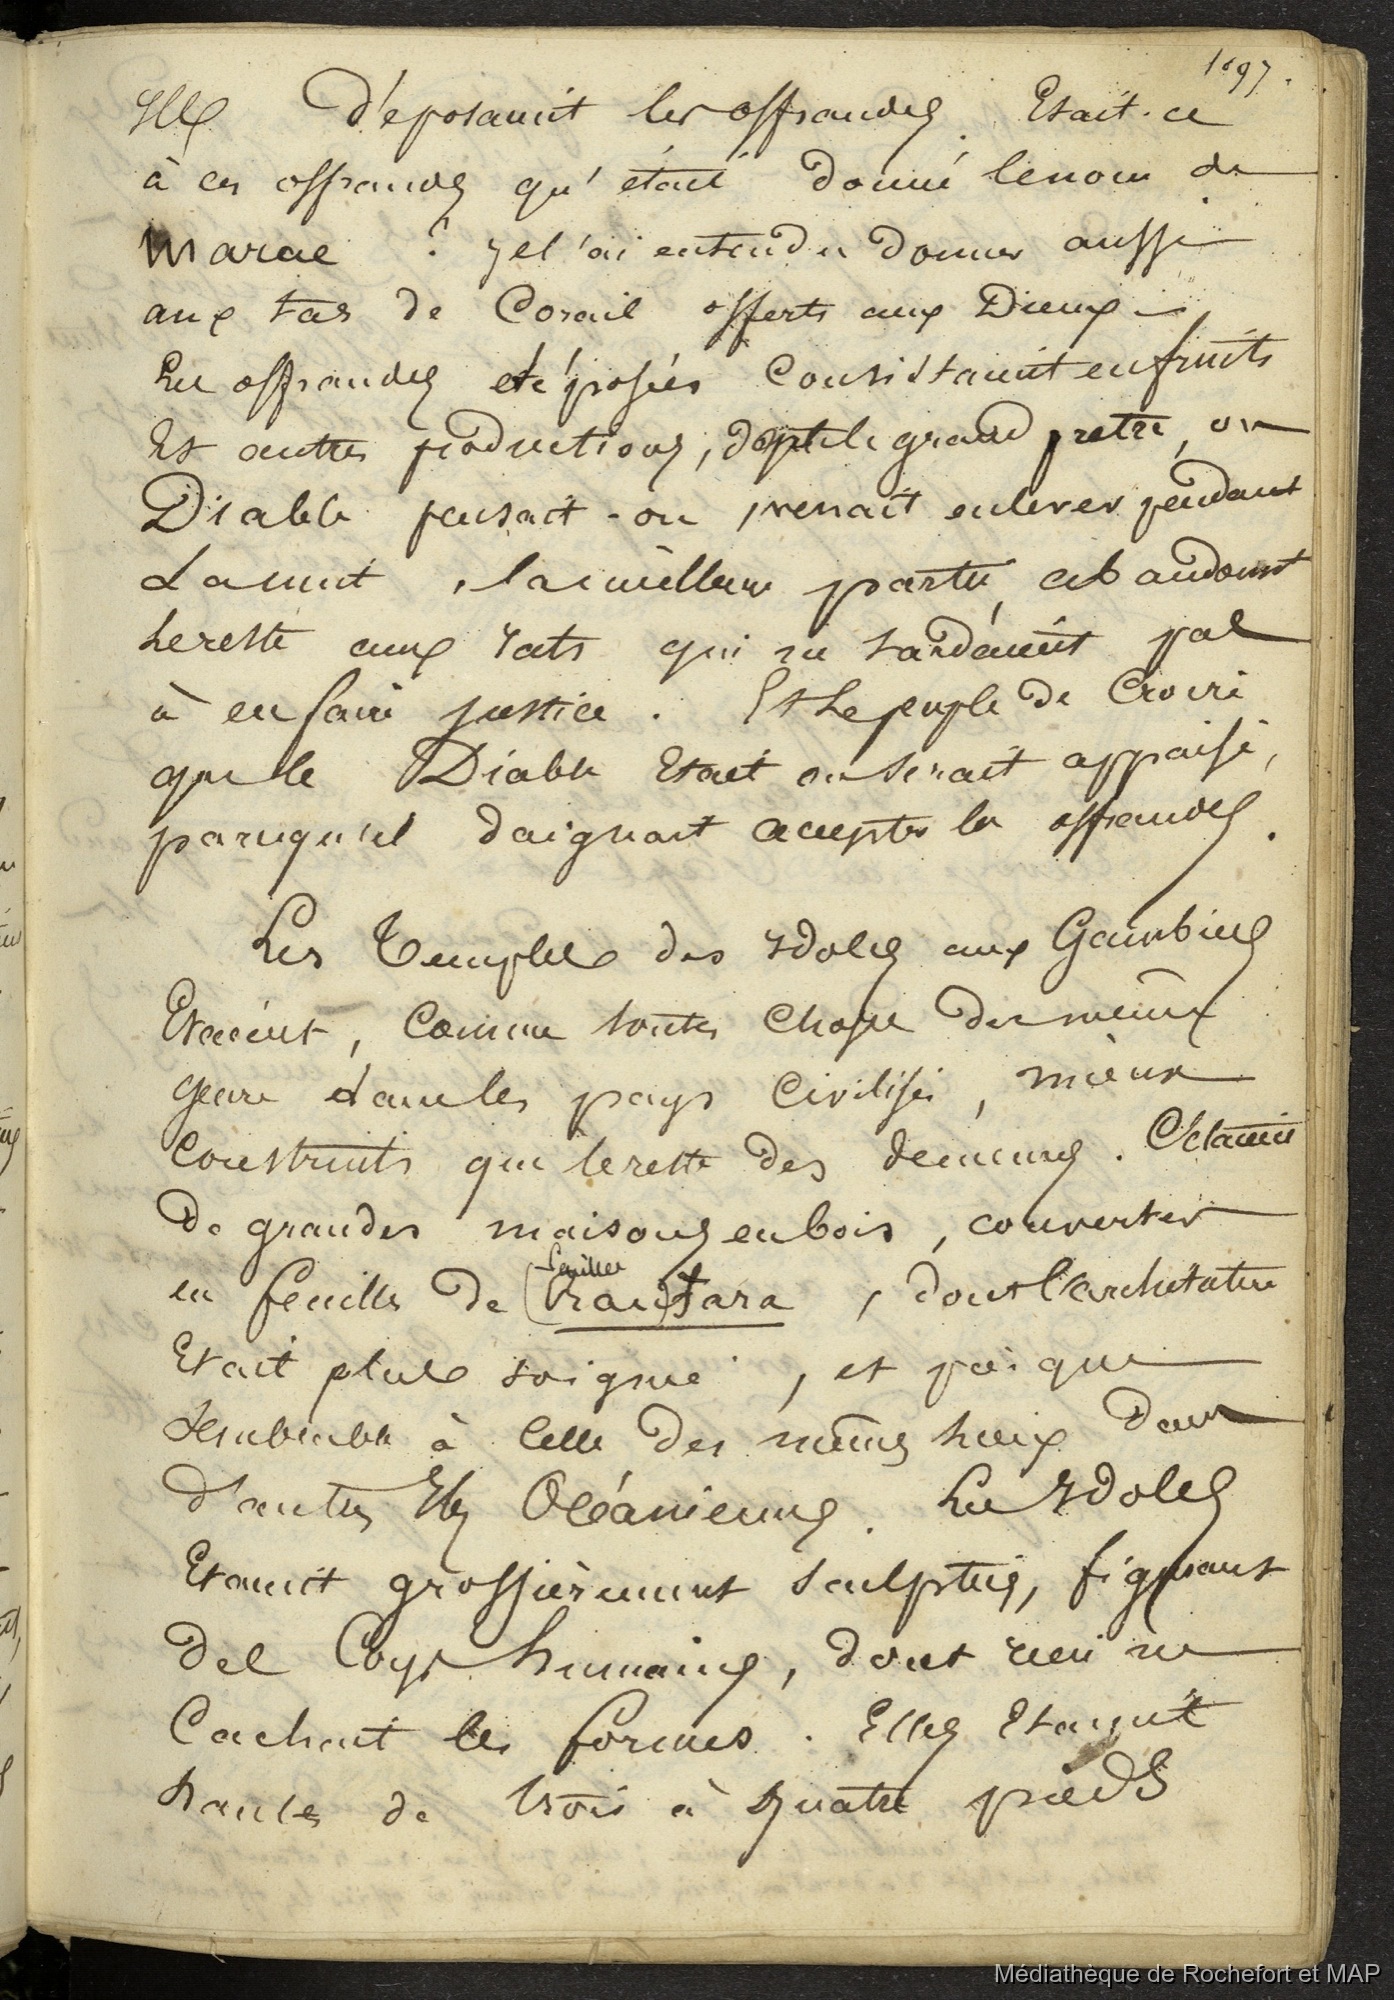 1097.
Ils déposaient les offrandes. Etait-ce
à ces offrandes qu'était donné le nom de
Marae ? je l'ai entendu donner aussi
aux tas de Corail offerts aux Dieux.
Les offrandes déposées Consistaient en fruits
Et autres productions, dont le grand prêtre, ou
Diable pensait-on venait enlever pendant
La nuit, la meilleure partie, abandonnt
Le reste aux rats qui ne tardaient pas
à en faire justice. Et Le peuple de Croire
que le Diable Etait ou serait appaisé,
parcequ'il daignait accepter les offrandes.
Les Temples des Idoles aux Gambiers
Etaient, Comme toutes Choses du même
genre dans les pays Civilisés, mieux
Construits que le reste des demeures. C'etaient
De grandes maisons en bois, couvertes
en feuilles de (rau) fara, dont l'architecture
Etait plus soignée, et presque
Semblable à Celle des mêmes lieux dans
d'autres Iles Océaniennes. Les Idoles
Etaient grossièrement sculptées, figurant
Des Corps humains, dont rien ne
Cachait les formes. Elles Etaient
hautes de trois à quatre pieds
Médiathèque de Rochefort et MAP